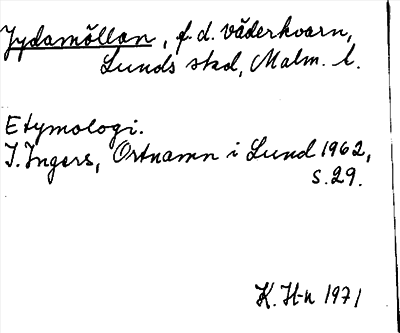 Jydamöllan, f.d. väderkvarn,
Lunds stad, Malm. l.
Etymologi.
I. Ingers, Ortnamn i Lund 1962,
s. 29.
K. H-n 1971